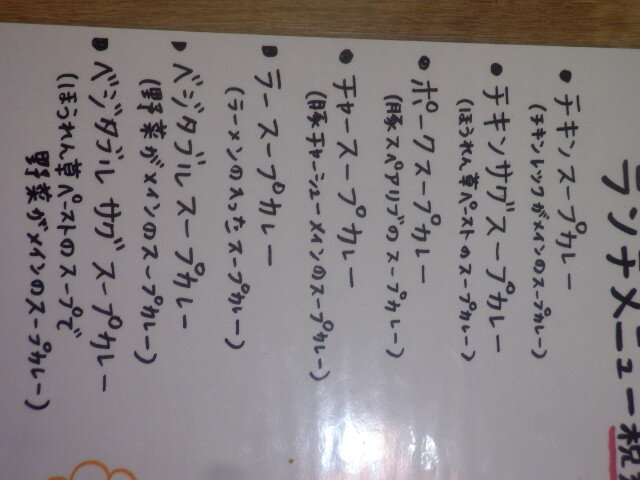 ランチメニュー税
• チキンスープカレー
(チキンレッグがメインのスープカレー)
• チキンサグスープカレー
(ほうれん草ペーストのスープカレー)
• ポークスープカレー
(豚スペアリブのスープカレー)
• チャースープカレー
(豚チャーシューメインのスープカレー)
• ラースープカレー
(ラーメンの入ったスープカレー)
• ベジタブルスープカレー
(野菜がメインのスープカレー)
• ベジタブルサグスープカレー
(ほうれん草ペーストのスープで
野菜がメインのスープカレー)